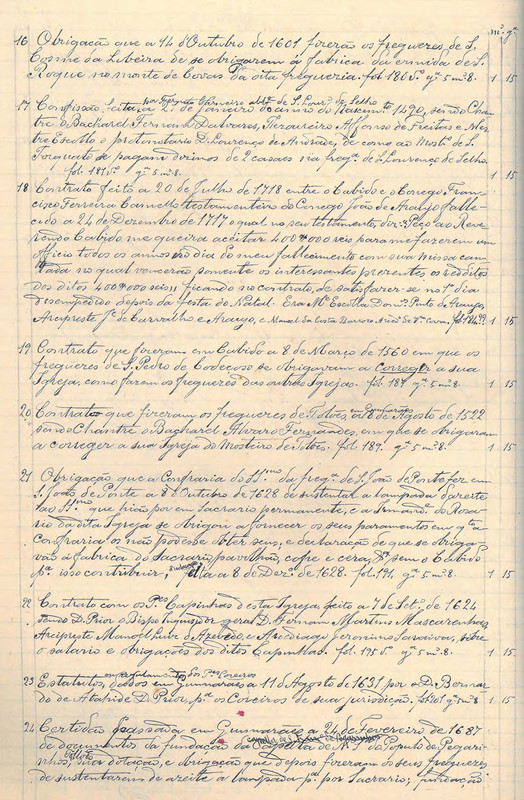 mº gª
16 Obrigação que a 14 d'Outubro de 1601 fizerão os freguezes de S.
Cosme da Lobeira de se obrigarem á fabrica da ermida de S.
Roque no monte de Covas da dita freguezia. fol. 186 vº gª 5 mº 8. 1 15
17 Confissão feita, a 21 de janeiro do anno do Nascim.to 1490, sendo Chan-
tre o Bacharel Fernam Dalvares, Tezoureiro Affonso de Freitas e Mes-
tre Escolla o protonotario D. Lourenço de Andrade, de como ao Mostº de S.
Torquato se pagam dizimos de 2 casaes na fregª de S. Lourenço de Selho.
fol. 187 vº gª 5 mº 8. 1 15
18 Contrato feito a 20 de Julho de 1718 entre o Cabido e o Conego Fran-
cisco Ferreira Carnello testamenteiro do Conego João de Araujo falle-
cido a 24 de Dezembro de 1717 o qual no seu testamento, diz: Peço ao Reve-
rendo Cabido me queira aceitar 400$000 reis para me fazerem um
Officio todos os annos no dia do meu fallecimento com sua missa can-
tada no qual vencerão somente os interessantes prezentes os redditos
dos ditos 400$000 reis; ficando no contrato, de satisfazer-se no 1º dia
desempedido depois da festa do Natal. Era Mº Escolla Domºs Pinto de Araujo,
Arcipreste Jº de Carvalho e Araujo, e Manoel da Costa 1 15
19 Contrato que fizeram em Cabido a 8 de Março de 1560 em que os
freguezes de S. Pedro de Codeçoso se obrigaram a Correger a sua
Igreja, como fazem os freguezes das outras Igrejas. fol. 187 gª 5 mº 8. 1 15
20 Contrato que fizeram os freguezes de Tolões, em Guimarães a de Agosto de 1522
sendo Chantre o Bacharel Alvaro Fernandes, em que se obrigaram
a correger a sua Igreja do Mosteiro de Tolões. fol. 189. gª 5 mº 8. 1 15
21 Obrigação que a Confraria do SSmo da fregª de S. João de Ponte fez em
S. João de Ponte a 8 d'Outubro de 1628 de sustentar a lampada d'azeite
ao SSmo que hião por em Sacrario permanente, e a Irmand.e do Rosa-
rio da dita Igreja se obrigou a fornecer os seus paramentos em qto a
Confraria os não podesse obter seus, e declaração de que se obriga-
vão á fabrica do Sacrario, pavilhão, cofre e cera, &ª sem o Cabido
pª isso contribuir, feita a 8 de Dezº de 1628. fol. 191, gª 5 mº 8. 1 15
22 Contrato com os Pes Capinhas desta Igreja, feito a 7 de Setº de 1624
sendo D. Prior o Bispo Inquisidor geral D. Fernam Martins Mascarenhas,
Arcipreste Manoel Leite d'Azevedo, e Arcediago Jeronimo Saraiva, sobre
o salario e obrigações dos ditos Capinhas. fol. 195 vº gª 5 mº 8. 1 15
23 Estatutos, ou regulamento dos Pes Coreiros dados em Guimaraes a 11 d'Agosto de 1631 por o D. Bernar-
do de Ataíde D. Prior, pª os Coreiros de sua jurisdição, fol. 201 gª 5 mº 8 1 15
24 Certidão passada em Guimaraes a 24 de Fevereiro de 1687
de documentos da fundação da Capella de N. Srª do Populo de Pegari-
nhos, sua dotação, e obrigação que depois fizeram os seus freguezes
de sustentarem de azeite a lampada pª por Sacrario;